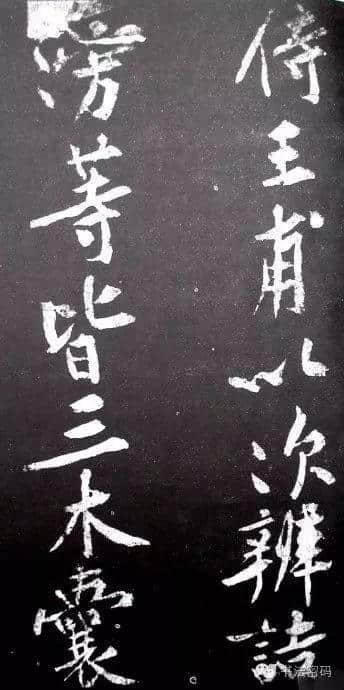 侍王甫以次辨詰
滂等皆三木囊
书法密码